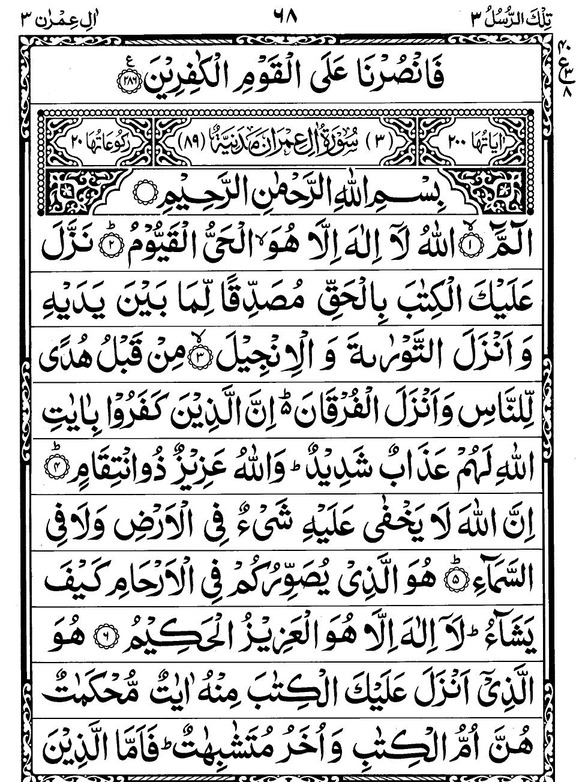 تِلْكَ الرُّسُلُ ٣
٦٨
اٰلِ عِمْرٰن ٣
٤٠
ع
٣
٨
فَانْصُرْنَا عَلَى الْقَوْمِ الْكٰفِرِيْنَ ﴿٢٨٦﴾ ع
اٰيَاتُهَا ٢٠٠
(٣) سُوْرَةُ اٰلِ عِمْرٰنَ مَدَنِيَّةٌ (٨٩)
رُكُوْعَاتُهَا ٢٠
بِسْمِ اللّٰهِ الرَّحْمٰنِ الرَّحِيْمِ ۝
الٓمّٓ ﴿١﴾ۙ اللّٰهُ لَاۤ اِلٰهَ اِلَّا هُوَ ۙ الْحَىُّ الْقَيُّوْمُ ﴿٢﴾ؕ نَزَّلَ
عَلَيْكَ الْكِتٰبَ بِالْحَقِّ مُصَدِّقًا لِّمَا بَيْنَ يَدَيْهِ
وَاَنْزَلَ التَّوْرٰىةَ وَ الْاِنْجِيْلَ ﴿٣﴾ۙ مِنْ قَبْلُ هُدًى
لِّلنَّاسِ وَاَنْزَلَ الْفُرْقَانَ ؕ۬ اِنَّ الَّذِيْنَ كَفَرُوْا بِاٰيٰتِ
اللّٰهِ لَهُمْ عَذَابٌ شَدِيْدٌ ؕ وَاللّٰهُ عَزِيْزٌ ذُوانْتِقَامٍ ﴿٤﴾ؕ
اِنَّ اللّٰهَ لَا يَخْفٰى عَلَيْهِ شَىْءٌ فِى الْاَرْضِ وَلَا فِى
السَّمَآءِ ﴿٥﴾ؕ هُوَ الَّذِىْ يُصَوِّرُكُمْ فِى الْاَرْحَامِ كَيْفَ
يَشَآءُ ؕ لَاۤ اِلٰهَ اِلَّا هُوَ الْعَزِيْزُ الْحَكِيْمُ ﴿٦﴾ هُوَ
الَّذِىْۤ اَنْزَلَ عَلَيْكَ الْكِتٰبَ مِنْهُ اٰيٰتٌ مُّحْكَمٰتٌ
هُنَّ اُمُّ الْكِتٰبِ وَاُخَرُ مُتَشٰبِهٰتٌ ؕ فَاَمَّا الَّذِيْنَ